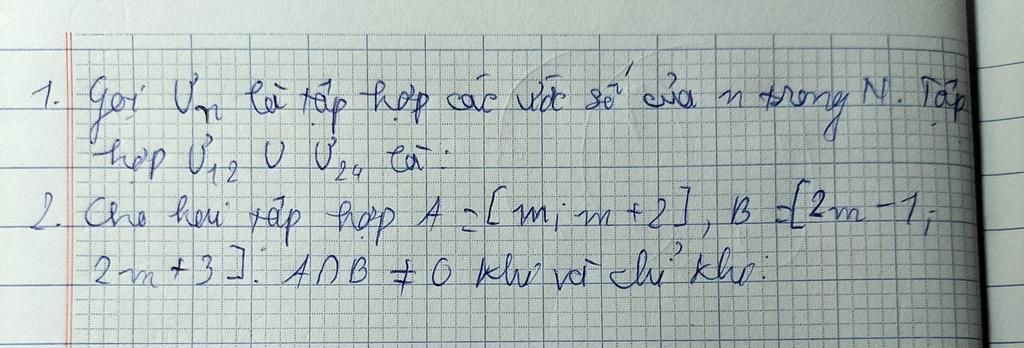 1. Gọi Ư_n là tập hợp các ước số của n trong N. Tập
hợp Ư_12 ∪ Ư_24 là:
2. Cho hai tập hợp A = [m; m + 2], B = [2m - 1;
2m + 3]. A ∩ B ≠ 0 khi và chỉ khi: